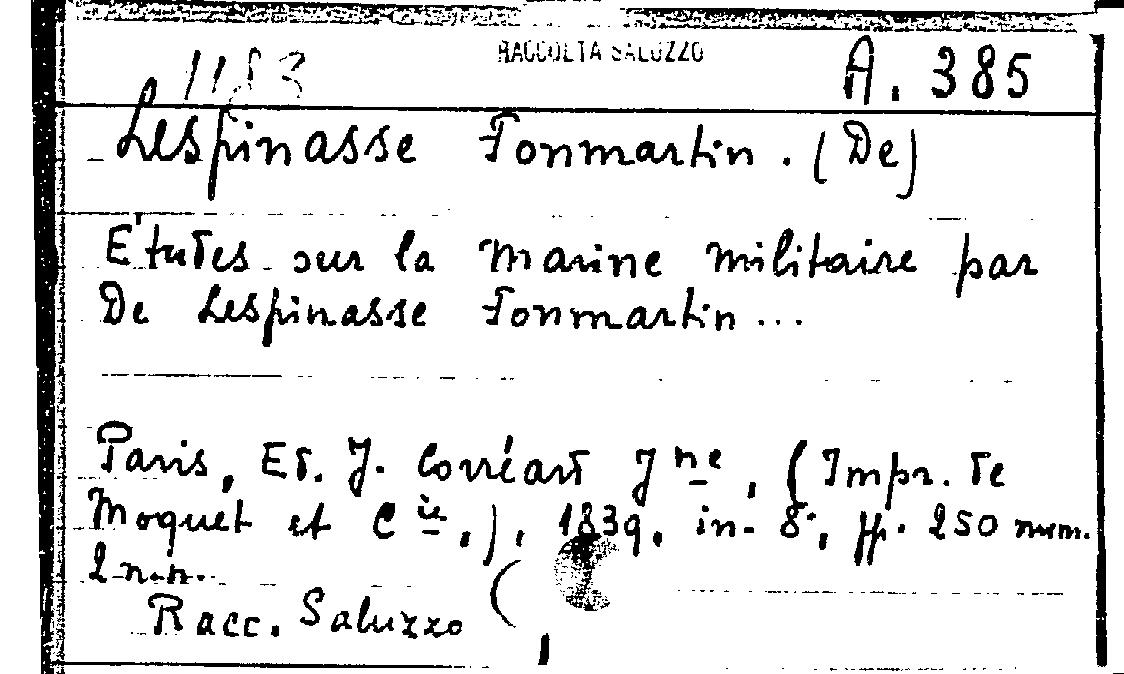 RACCOLTA SALUZZO
1183
A. 385
Lespinasse Fonmartin. (De)
Études sur la marine militaire par
De Lespinasse Fonmartin...
Paris, Ed. J. Corréard Jne, (Impr. de
Moquet et Cie.), 1839. in-8°, pp. 250 num.
2 n.n.
Racc. Saluzzo